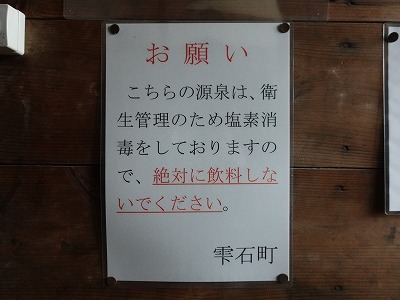 お願い
こちらの源泉は、衛
生管理のため塩素消
毒をしておりますの
で、絶対に飲料しな
いでください。
雫石町